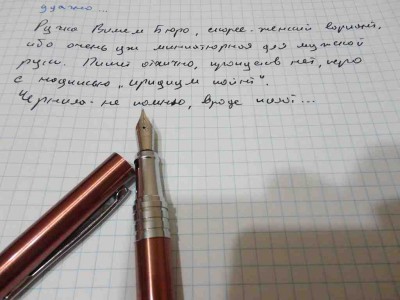 удачно...
Ручка Вилем Бюро, скорее - женский вариант,
ибо очень уж миниатюрная для мужской
руки. Пишет отлично, нет, перо
с надписью „иридиум пойнт".
Чернила - не помню, вроде ...